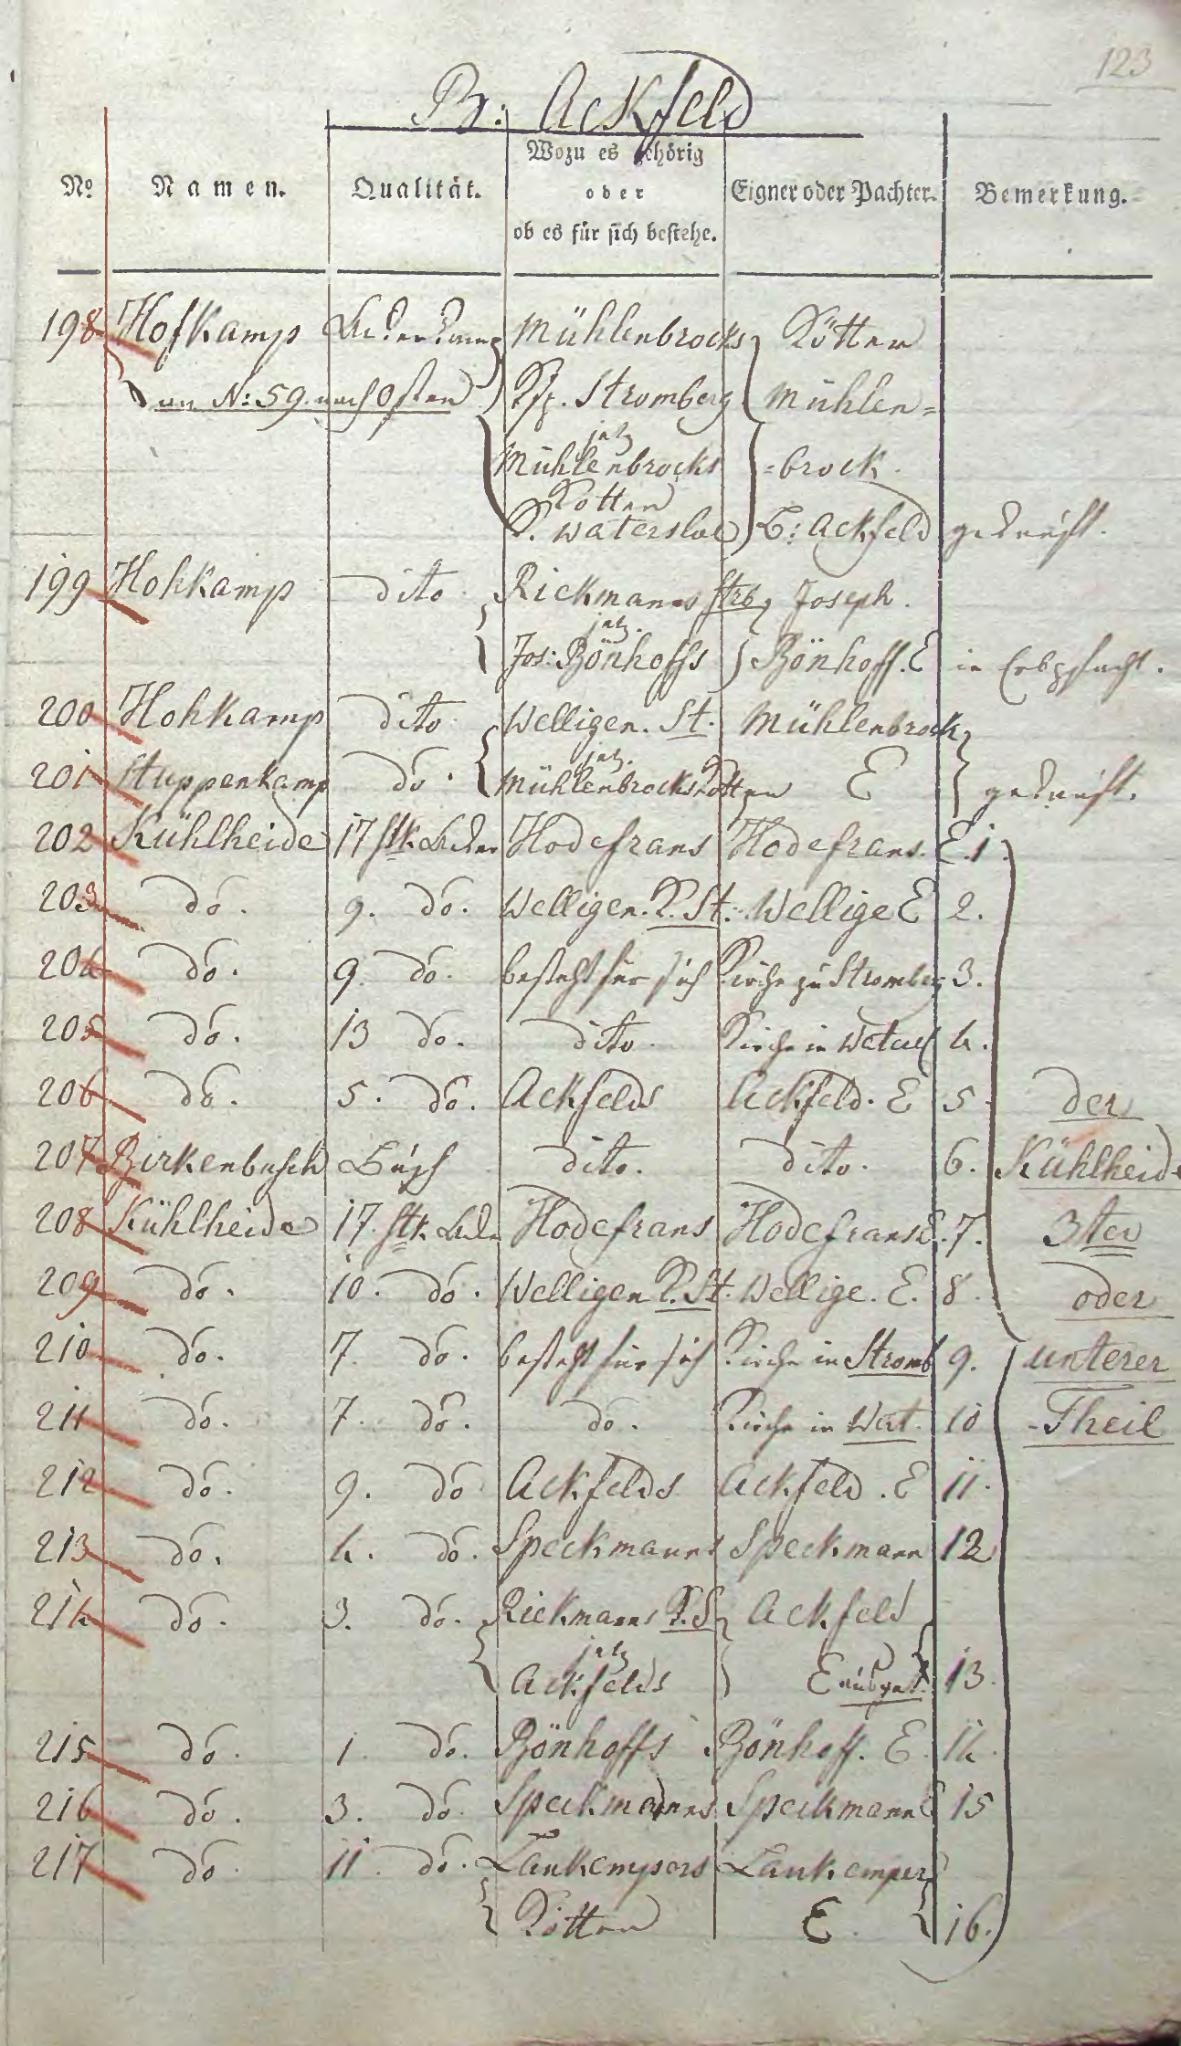 123
B: Ackfeld
No Namen. Qualität. Wozu es gehörig oder ob es für sich bestehe. Eigner oder Pachter. Bemerkung.
198 Hofkamp Ackerkamp Mühlenbrocks Kötter
an N: 59. nach Osten Ksp. Stromberg Mühlen=
jetz
Mühlenbrocks =brock.
Kotten
K. Watersloe B: Ackfeld gekauft.
199 Hohkamp dito Rickmanns Strb Joseph.
jetz.
Jos: Bönhoffs Bönhoff. E in Erbpfacht.
200 Hohkamp dito Welligen. St. Mühlenbrock
jetz.
201 Stuppenkamp do. Mühlenbrocks Kotten E gekauft.
202 Kühlheide 17 stk. Acker Hodefrans Hodefrans. E. 1.
203 do. 9. do. Welligen. K. St. Wellige E 2.
204 do. 9. do. besteht für sich Kirche zu Stromberg 3.
205 do. 13 do. dito. Kirche in Watersl 4.
206 do. 5. do. Ackfelds Ackfeld. E 5. der
207 Birkenbusch Busch dito. dito. 6. Kühlheide
208 Kühlheide 17. stk. Acker Hodefrans Hodefrans E. 7. 3ter
209 do. 10. do. Welligen K. St. Wellige. E. 8. oder
210 do. 7. do. besteht für sich Kirche in Stromb 9. unterer
211 do. 7. do. do. Kirche in Wat. 10 -Theil
212 do. 9. do Ackfelds Ackfeld. E 11.
213 do. 4. do. Speckmanns Speckmann 12
214 do. 3. do. Rickmanns K. S Ackfeld
jetz
Ackfelds E 13.
215 do. 1. do. Bönhoffs Bönhoff. E. 14.
216 do. 3. do. Speckmanns Speckmann E 15
217 do 11. do. Lankempers Lankemper
Kotten E. 16.